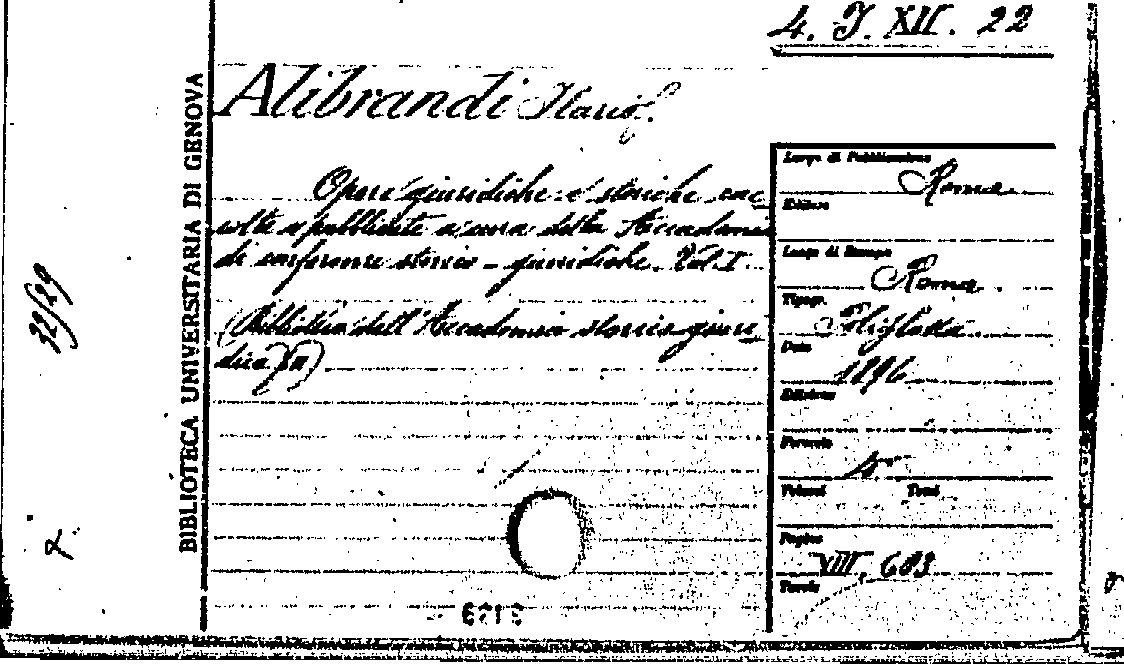 4. J. XII. 22
Alibrandi Ilario.
Opere giuridiche e storiche rac
colte e pubblicate a cura della Accademia
di conferenze storico-giuridiche. Vol. I
(Biblioteca dell'Accademia storico giuri
dica XII)
BIBLIOTECA UNIVERSITARIA DI GENOVA
32/29
2.
Luogo di Pubblicazione
Roma
Editore
Luogo di Stampa
Roma
Tipogr.
Poliglotta
Data
1896
Edizione
Formato
Volumi Tomi
Pagine
XIII, 603
Tavole